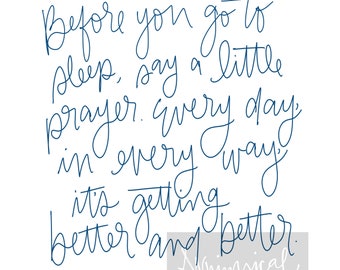 Before you go to
sleep, say a little
prayer. Every day,
in every way,
it's getting
better and better.
Whimsical